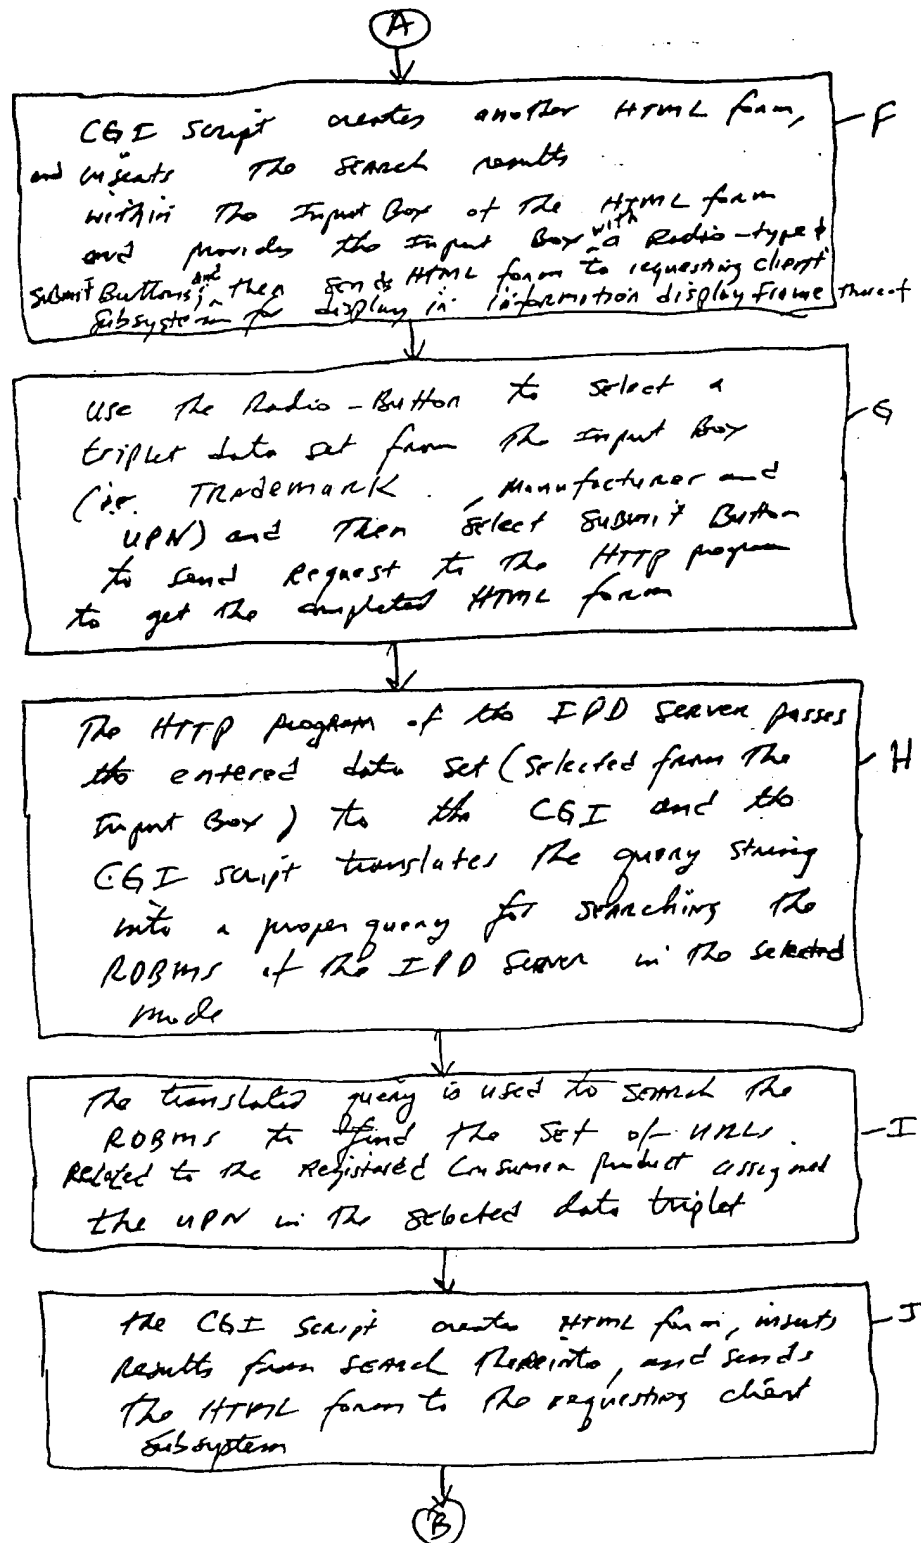 A
CGI script creates another HTML form, F
and inserts the search results
within the Input Box of the HTML form
and provides the Input Box with a Radio-type &
Submit Buttons; and then sends HTML form to requesting client
subsystem for display in information display frame thereof
use the Radio-Button to select a G
triplet data set from the Input Box
(i.e. Trademark, Manufacturer and
UPN) and then select Submit Button
to send Request to the HTTP program
to get the completed HTML form
The HTTP program of the IPD Server passes
the entered data set (selected from the H
Input Box) to the CGI and the
CGI script translates the query string
into a proper query for searching the
RDBMS of the IPD Server in the selected
mode
The translated query is used to search the
RDBMS to find the set of URLs I
Related to the Registered Consumer product assigned
the UPN in the selected data triplet
the CGI script creates HTML form, inserts J
results from search thereinto, and sends
the HTML form to the requesting client
subsystem
B